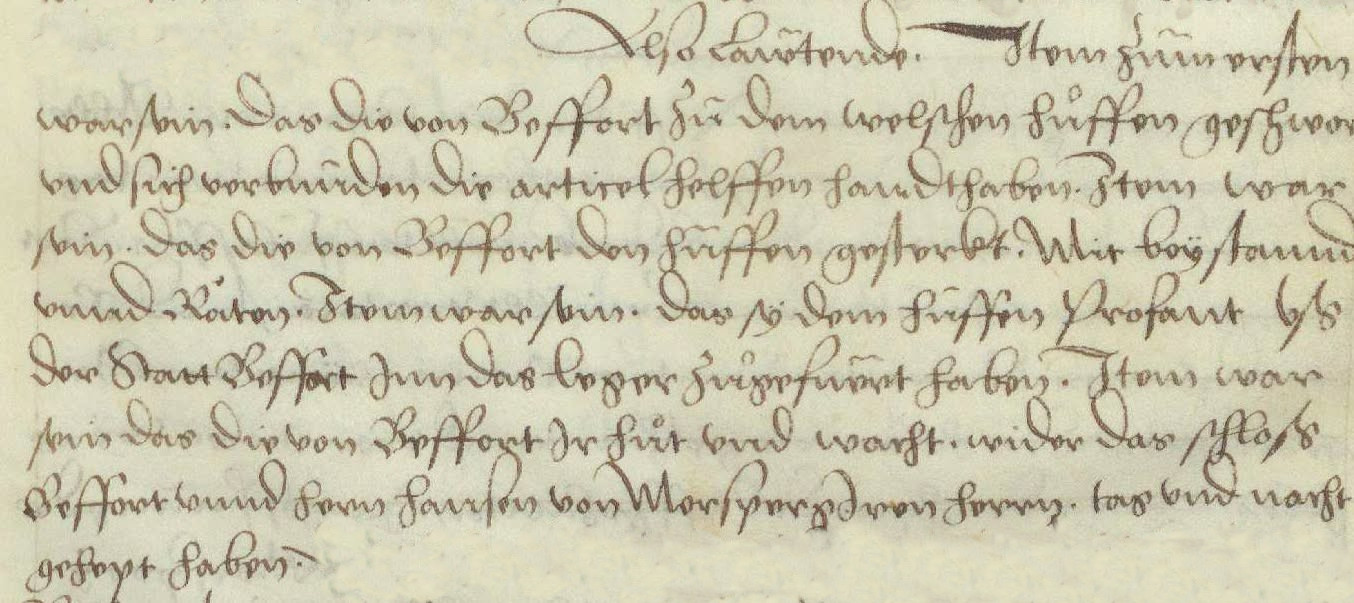 Also lautende. Item zum ersten
war sein. Das die von Beffort zů dem welschen hůffen geschwor
vnd sich verbunden die articel helffen handthaben. Item war
sein. das die von Beffort den huffen gesterkt. Mit beystannd
vnnd Räten. Item war sein. das sy dem huffen Profant vß
der Statt Beffort Inn das leger zůgefuert haben. Item war
sein das die von Beffort Ir hůt vnd wacht. wider das schloss
Beffort vnnd hern hansen von Morsperg Iren herrn. tag vnd nacht
gehept haben.